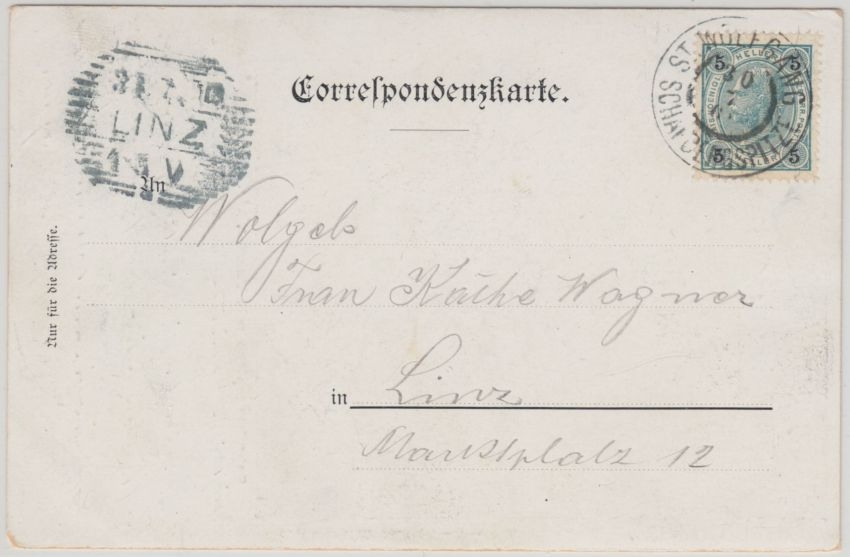 Correspondenzkarte.
ST. WOLFGANG
SCHAFBERGSPITZE
5 5
5 5
LINZ
An
Wolgeb
Frau Käthe Wagner
in Linz
Marktplatz 12
Nur für die Adresse.